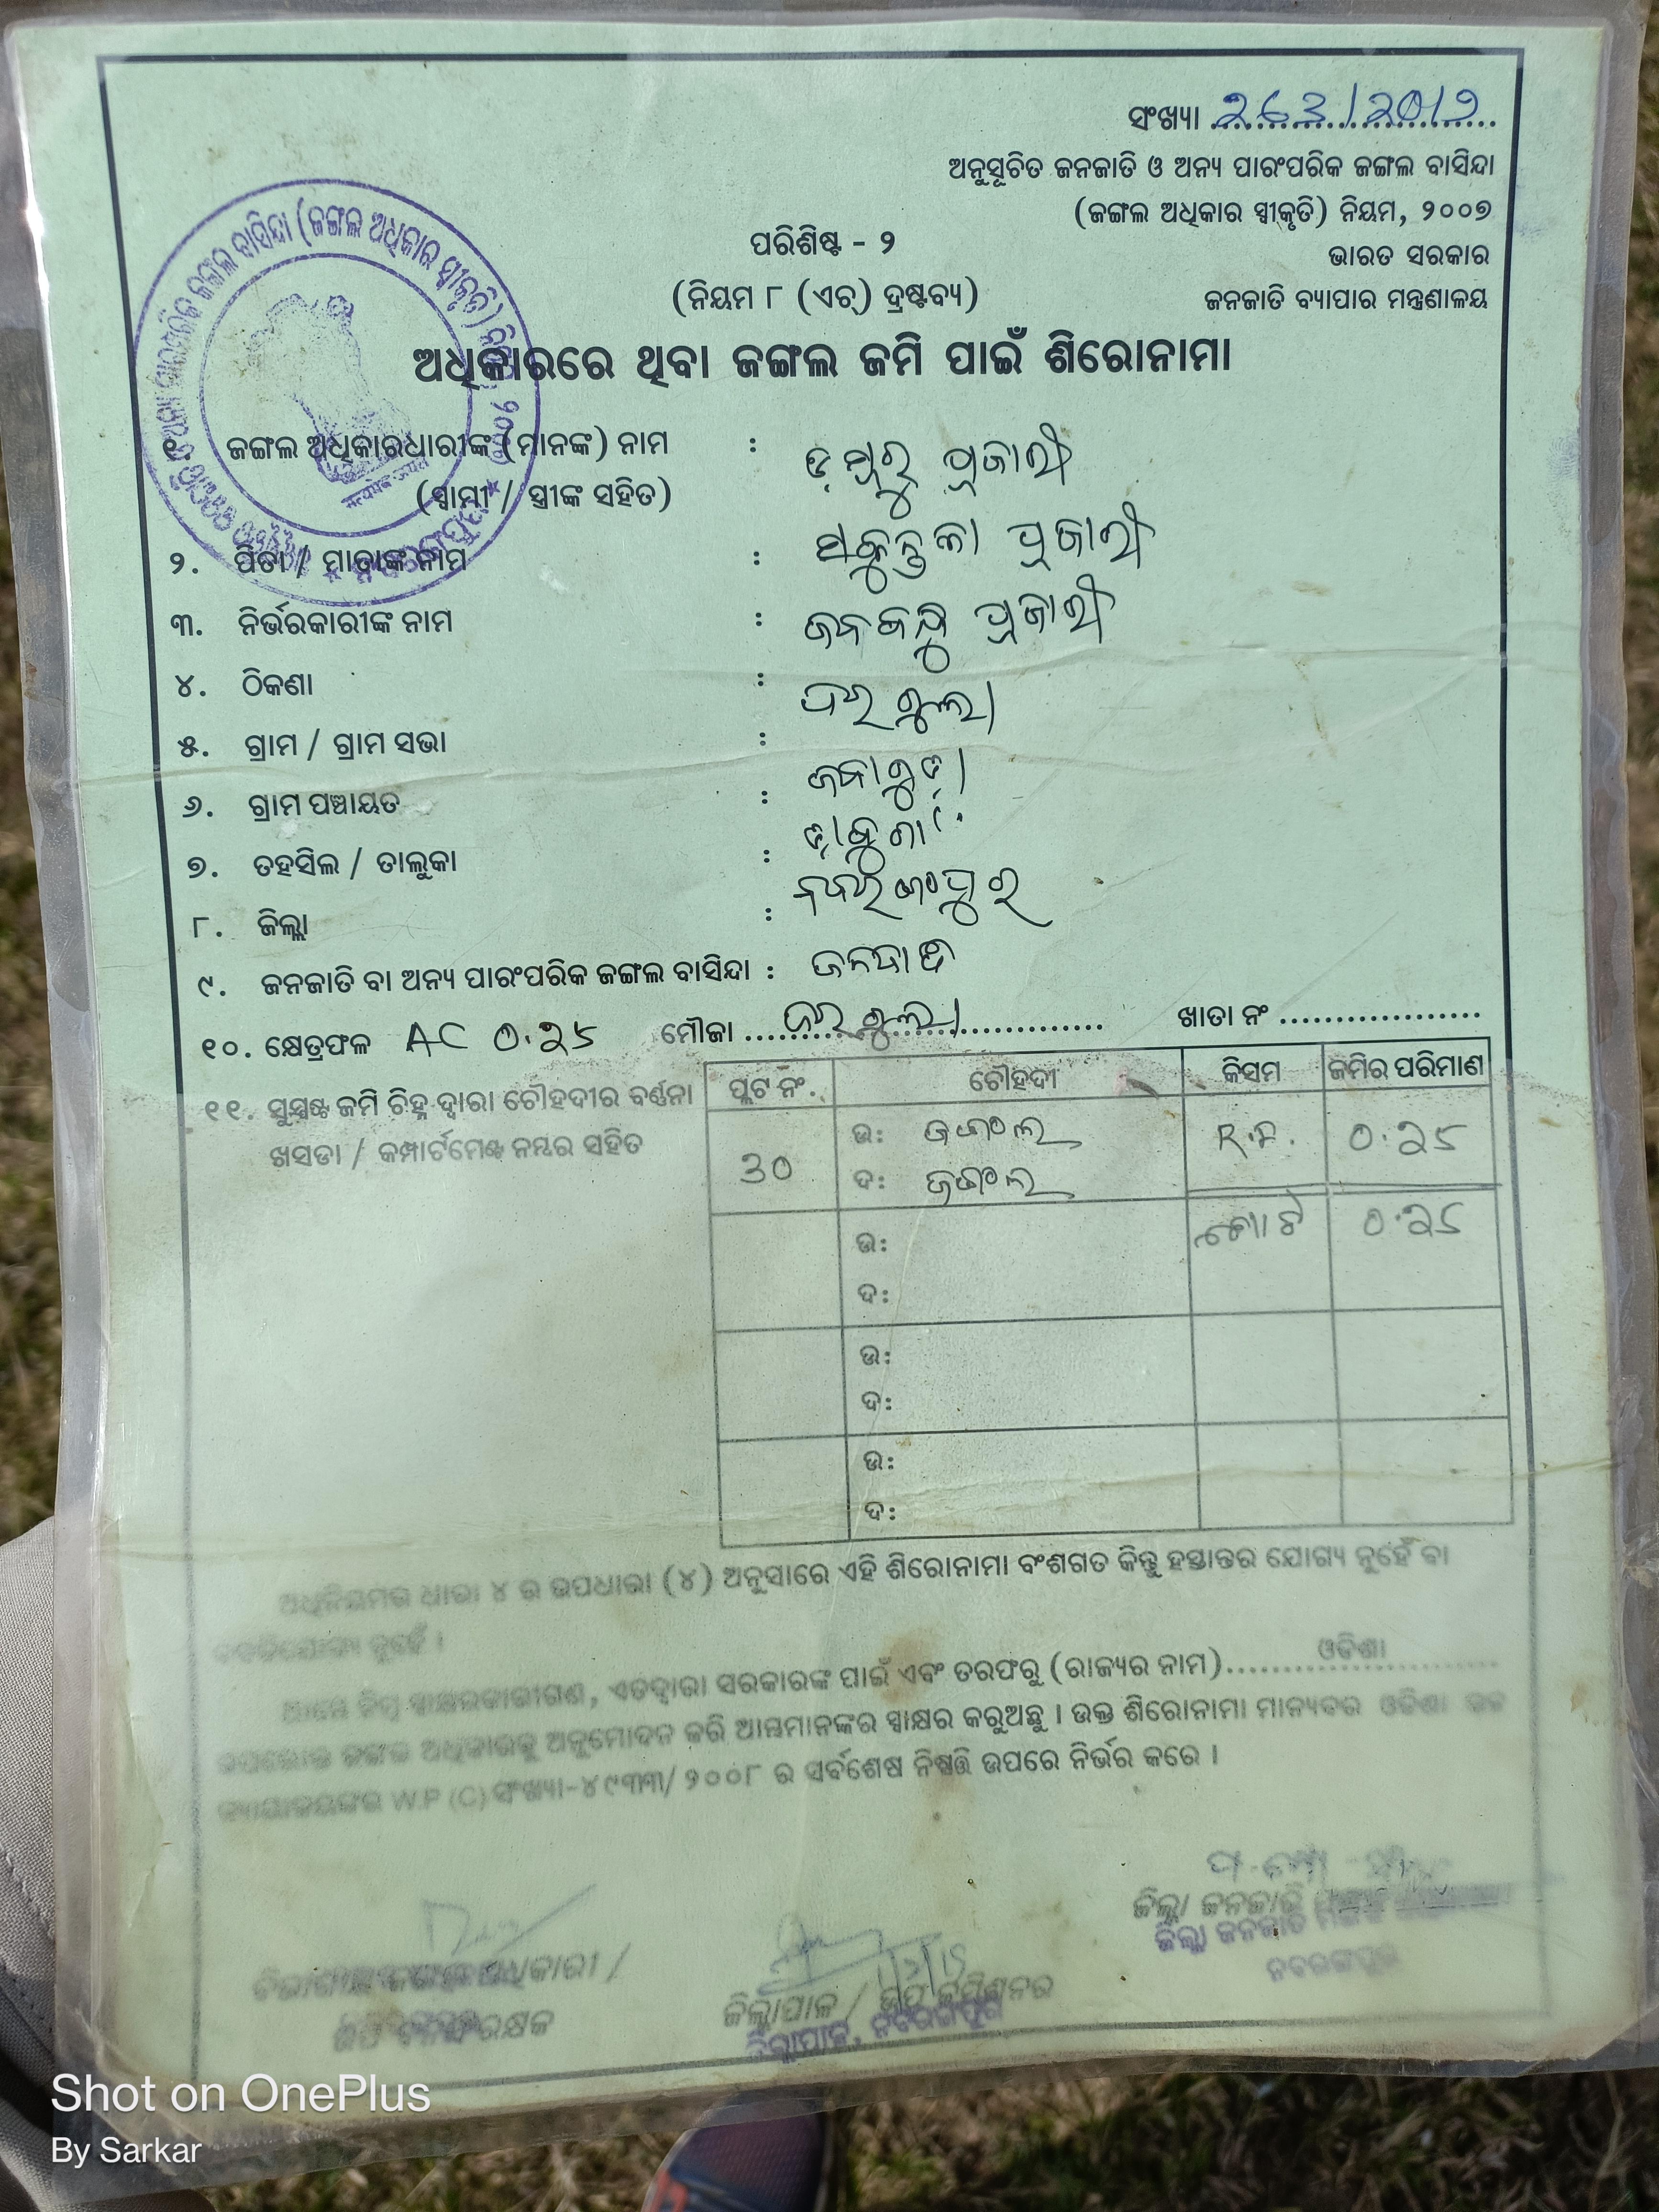 ସଂଖ୍ୟା
ଅନୁସୂଚିତ ଜନଜାତି ଓ ଅନ୍ୟ ପାରଂପରିକ ଜଙ୍ଗଲ ବାସିନ୍ଦା
(ଜଙ୍ଗଲ ଅଧିକାର ସ୍ୱୀକୃତି) ନିୟମ, ୨୦୦୭
ଭାରତ ସରକାର
ଜନଜାତି ବ୍ୟାପାର ମନ୍ତ୍ରଣାଳୟ
ପରିଶିଷ୍ଟ - ୨
(ନିୟମ ୮ (ଏଚ୍) ଦ୍ରଷ୍ଟବ୍ୟ)
ଅଧିକାରରେ ଥିବା ଜଙ୍ଗଲ ଜମି ପାଇଁ ଶିରୋନାମା
୧. ଜଙ୍ଗଲ ଅଧିକାରଧାରୀଙ୍କ (ମାନଙ୍କ) ନାମ : ଡମ୍ବରୁ ପୂଜାରୀ
(ସ୍ୱାମୀ / ସ୍ତ୍ରୀଙ୍କ ସହିତ)
୨. ପିତା / ମାତାଙ୍କ ନାମ : ପୂଜାରୀ
୩. ନିର୍ଭରକାରୀଙ୍କ ନାମ : ପୂଜାରୀ
୪. ଠିକଣା :
୫. ଗ୍ରାମ / ଗ୍ରାମ ସଭା :
୬. ଗ୍ରାମ ପଞ୍ଚାୟତ :
୭. ତହସିଲ / ତାଲୁକା : ଡାବୁଗାଁ
୮. ଜିଲ୍ଲା : ନବରଙ୍ଗପୁର
୯. ଜନଜାତି ବା ଅନ୍ୟ ପାରଂପରିକ ଜଙ୍ଗଲ ବାସିନ୍ଦା : ଜନଜାତି
୧୦. କ୍ଷେତ୍ରଫଳ AC 0.25 ମୌଜା ଖାତା ନଂ
୧୧. ସୁସ୍ପଷ୍ଟ ଜମି ଚିହ୍ନ ଦ୍ୱାରା ଚୌହଦୀର ବର୍ଣ୍ଣନା
ଖସଡା / କମ୍ପାର୍ଟମେଣ୍ଟ ନମ୍ବର ସହିତ
ପ୍ଲଟ ନଂ. ଚୌହଦୀ କିସମ ଜମିର ପରିମାଣ
30 ଉ: ଜଙ୍ଗଲ R.F. 0.25
ଦ: ଜଙ୍ଗଲ
ଉ: ମୋଟ 0.25
ଦ:
ଉ:
ଦ:
ଉ:
ଦ:
ଅଧିନିୟମର ଧାରା ୪ ର ଉପଧାରା (୪) ଅନୁସାରେ ଏହି ଶିରୋନାମା ବଂଶଗତ କିନ୍ତୁ ହସ୍ତାନ୍ତର ଯୋଗ୍ୟ ନୁହେଁ ବା
ନୁହେଁ ।
ଆମ୍ଭେ ନିମ୍ନ ସ୍ୱାକ୍ଷରକାରୀଗଣ, ଏତଦ୍ୱାରା ସରକାରଙ୍କ ପାଇଁ ଏବଂ ତରଫରୁ (ରାଜ୍ୟର ନାମ) ଓଡିଶା
ଉପରୋକ୍ତ ଜଙ୍ଗଲ ଅଧିକାରକୁ ଅନୁମୋଦନ କରି ଆମ୍ଭମାନଙ୍କର ସ୍ୱାକ୍ଷର କରୁଅଛୁ । ଉକ୍ତ ଶିରୋନାମା ମାନ୍ୟବର ଓଡିଶା ଉଚ୍ଚ
ନ୍ୟାୟାଳୟଙ୍କର W.P (C) ସଂଖ୍ୟା-୪୯୩୩/୨୦୦୮ ର ସର୍ବଶେଷ ନିଷ୍ପତ୍ତି ଉପରେ ନିର୍ଭର କରେ ।
ଜିଲ୍ଲା ଜନଜାତି
ଜିଲ୍ଲା ଜନଜାତି ମଙ୍ଗଳ
ନବରଙ୍ଗପୁର
ଜିଲ୍ଲାପାଳ / ଉପ କମିଶନର
ଜିଲ୍ଲାପାଳ, ନବରଙ୍ଗପୁର
Shot on OnePlus
By Sarkar